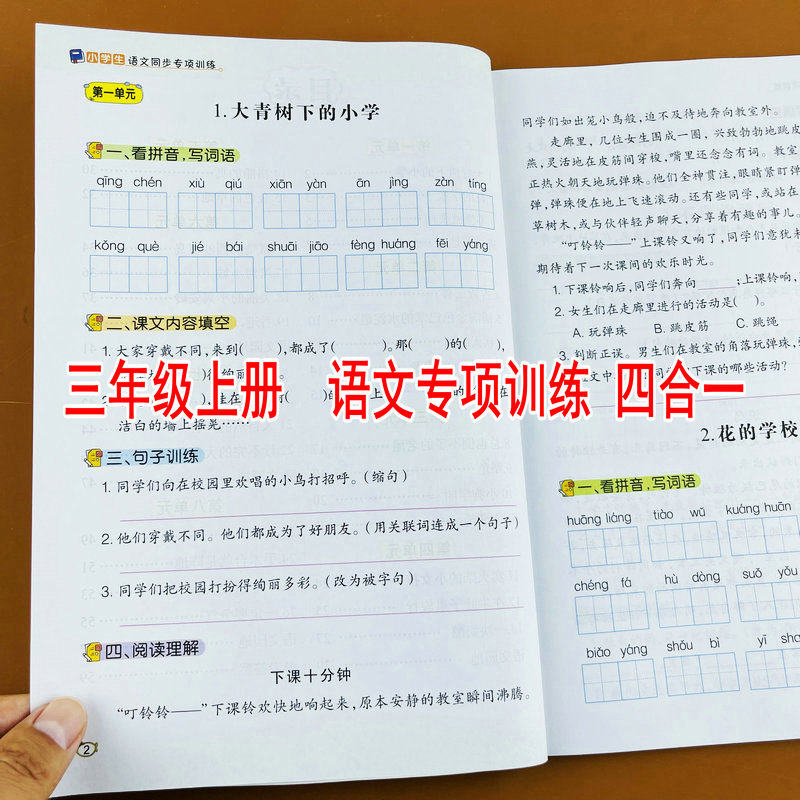 小学生 语文同步专项训练
第一单元
1.大青树下的小学
一、看拼音,写词语
qīng chén xiù qiú xiān yàn ān jìng zàn tíng
kǒng què jié bái shuāi jiāo fèng huáng fēi yáng
二、课文内容填空
1.大家穿戴不同,来到( ),都成了( )。那( )的( ),
洁白的墙上摇晃……
三、句子训练
1.同学们向在校园里欢唱的小鸟打招呼。(缩句)
2.他们穿戴不同。他们都成为了好朋友。(用关联词连成一个句子)
3.同学们把校园打扮得绚丽多彩。(改为被字句)
四、阅读理解
下课十分钟
“叮铃铃——”下课铃欢快地响起来,原本安静的教室瞬间沸腾。
2
三年级上册 语文专项训练 四合一
同学们如出笼小鸟般,迫不及待地奔向教室外。
走廊里,几位女生围成一圈,兴致勃勃地跳皮
燕,灵活地在皮筋间穿梭,嘴里还念念有词。教室
正热火朝天地玩弹珠。他们全神贯注,眼睛紧盯弹
弹,弹珠便在地上飞速滚动。还有些同学,或站在
草树木,或与伙伴轻声聊天,分享着有趣的事儿。
“叮铃铃——”上课铃又响了,同学们意犹未
期待着下一次课间的欢乐时光。
1.下课铃响后,同学们奔向 ;上课铃响,
2.女生们在走廊里进行的活动是( )。
A.玩弹珠 B.跳皮筋 C.跳绳
3.判断正误。男生们在教室的角落玩弹珠,
下课的哪些活动?
2.花的学校
一、看拼音,写词语
huāng liáng tiào wǔ kuáng huān
chéng fá hù dòng suǒ yǒu
biǎo yáng shǒu bì yī